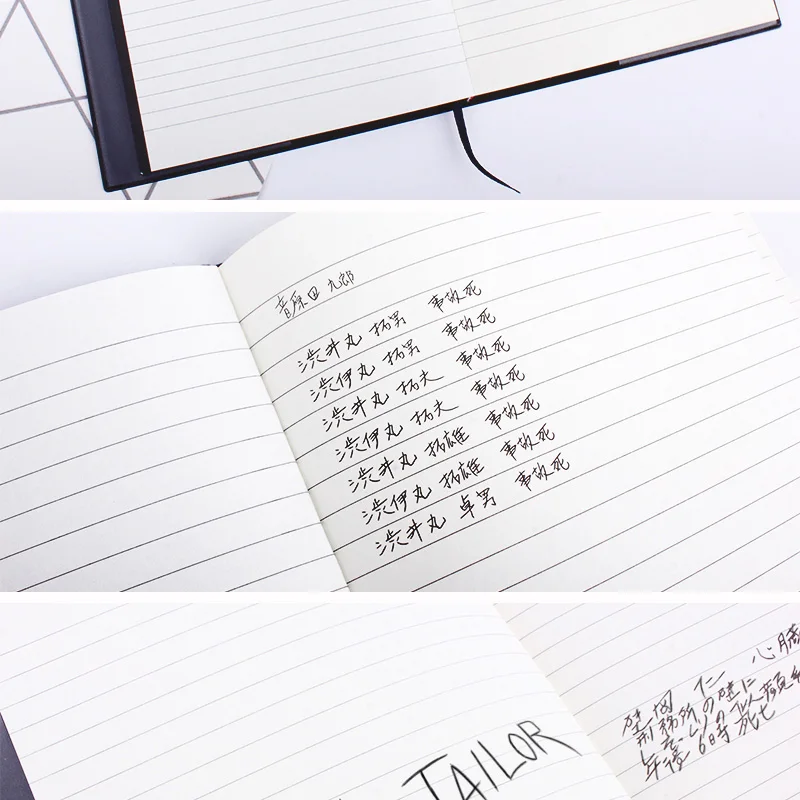 音原田 九郎
渋井丸 拓男 事故死
渋伊丸 拓男 事故死
渋井丸 拓夫 事故死
渋伊丸 拓夫 事故死
渋井丸 拓雄 事故死
渋伊丸 拓雄 事故死
渋井丸 卓男 事故死
TAILOR
岡 仁 心臓
刑務所の壁に
6時 死亡